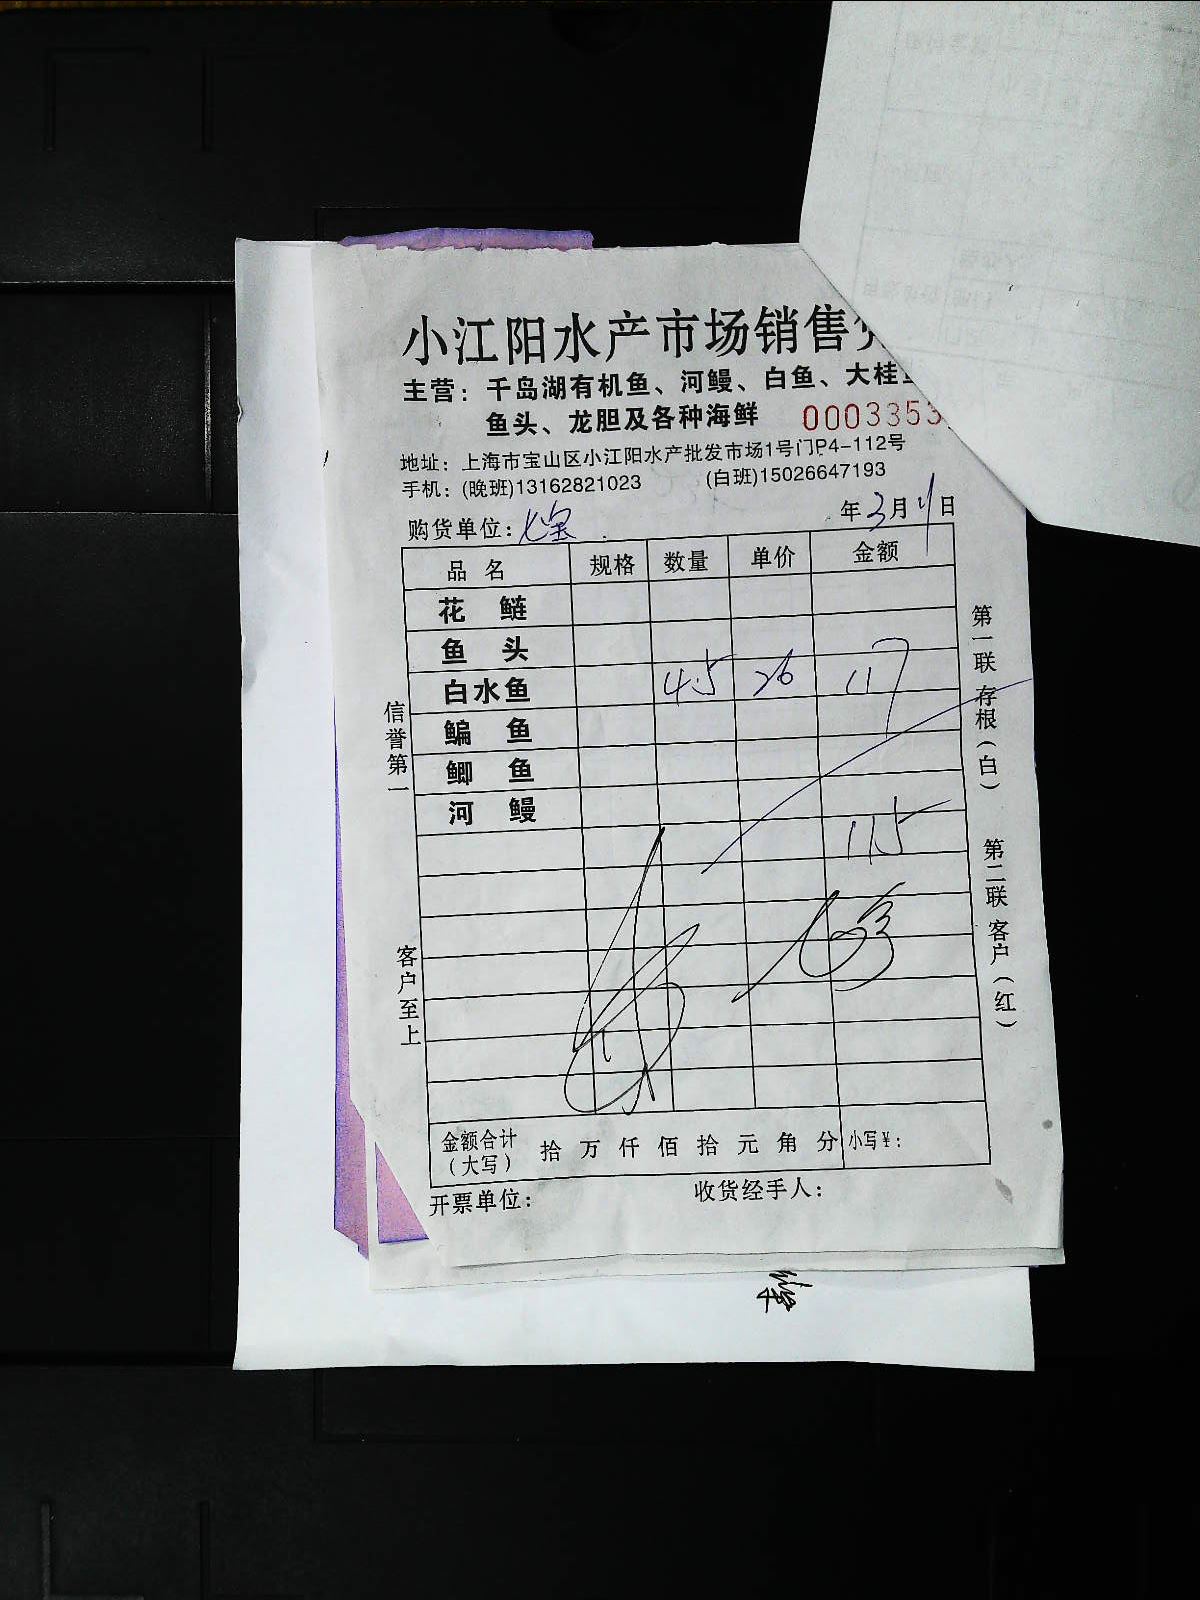 小江阳水产市场销售
主营：千岛湖有机鱼、河鳗、白鱼、大桂
鱼头、龙胆及各种海鲜 0003353
地址：上海市宝山区小江阳水产批发市场1号门P4-112号
手机：(晚班)13162821023 (白班)15026647193
购货单位：七宝 年3月 日
品名 规格 数量 单价 金额
花鲢
鱼头
白水鱼 4.5 26 117
鳊鱼
鲫鱼
河鳗
115
金额合计（大写） 拾万仟佰拾元角分 小写¥：
开票单位： 收货经手人：
信誉第一
客户至上
第一联存根（白）
第二联客户（红）